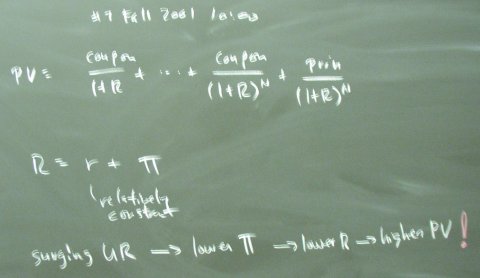 #7 Fall 2001
PV = Coupon/(1+R) + ... + Coupon/(1+R)^N + Prin/(1+R)^N
R = r + π
relatively
constant
surging UR → lower π → lower R → higher PV!